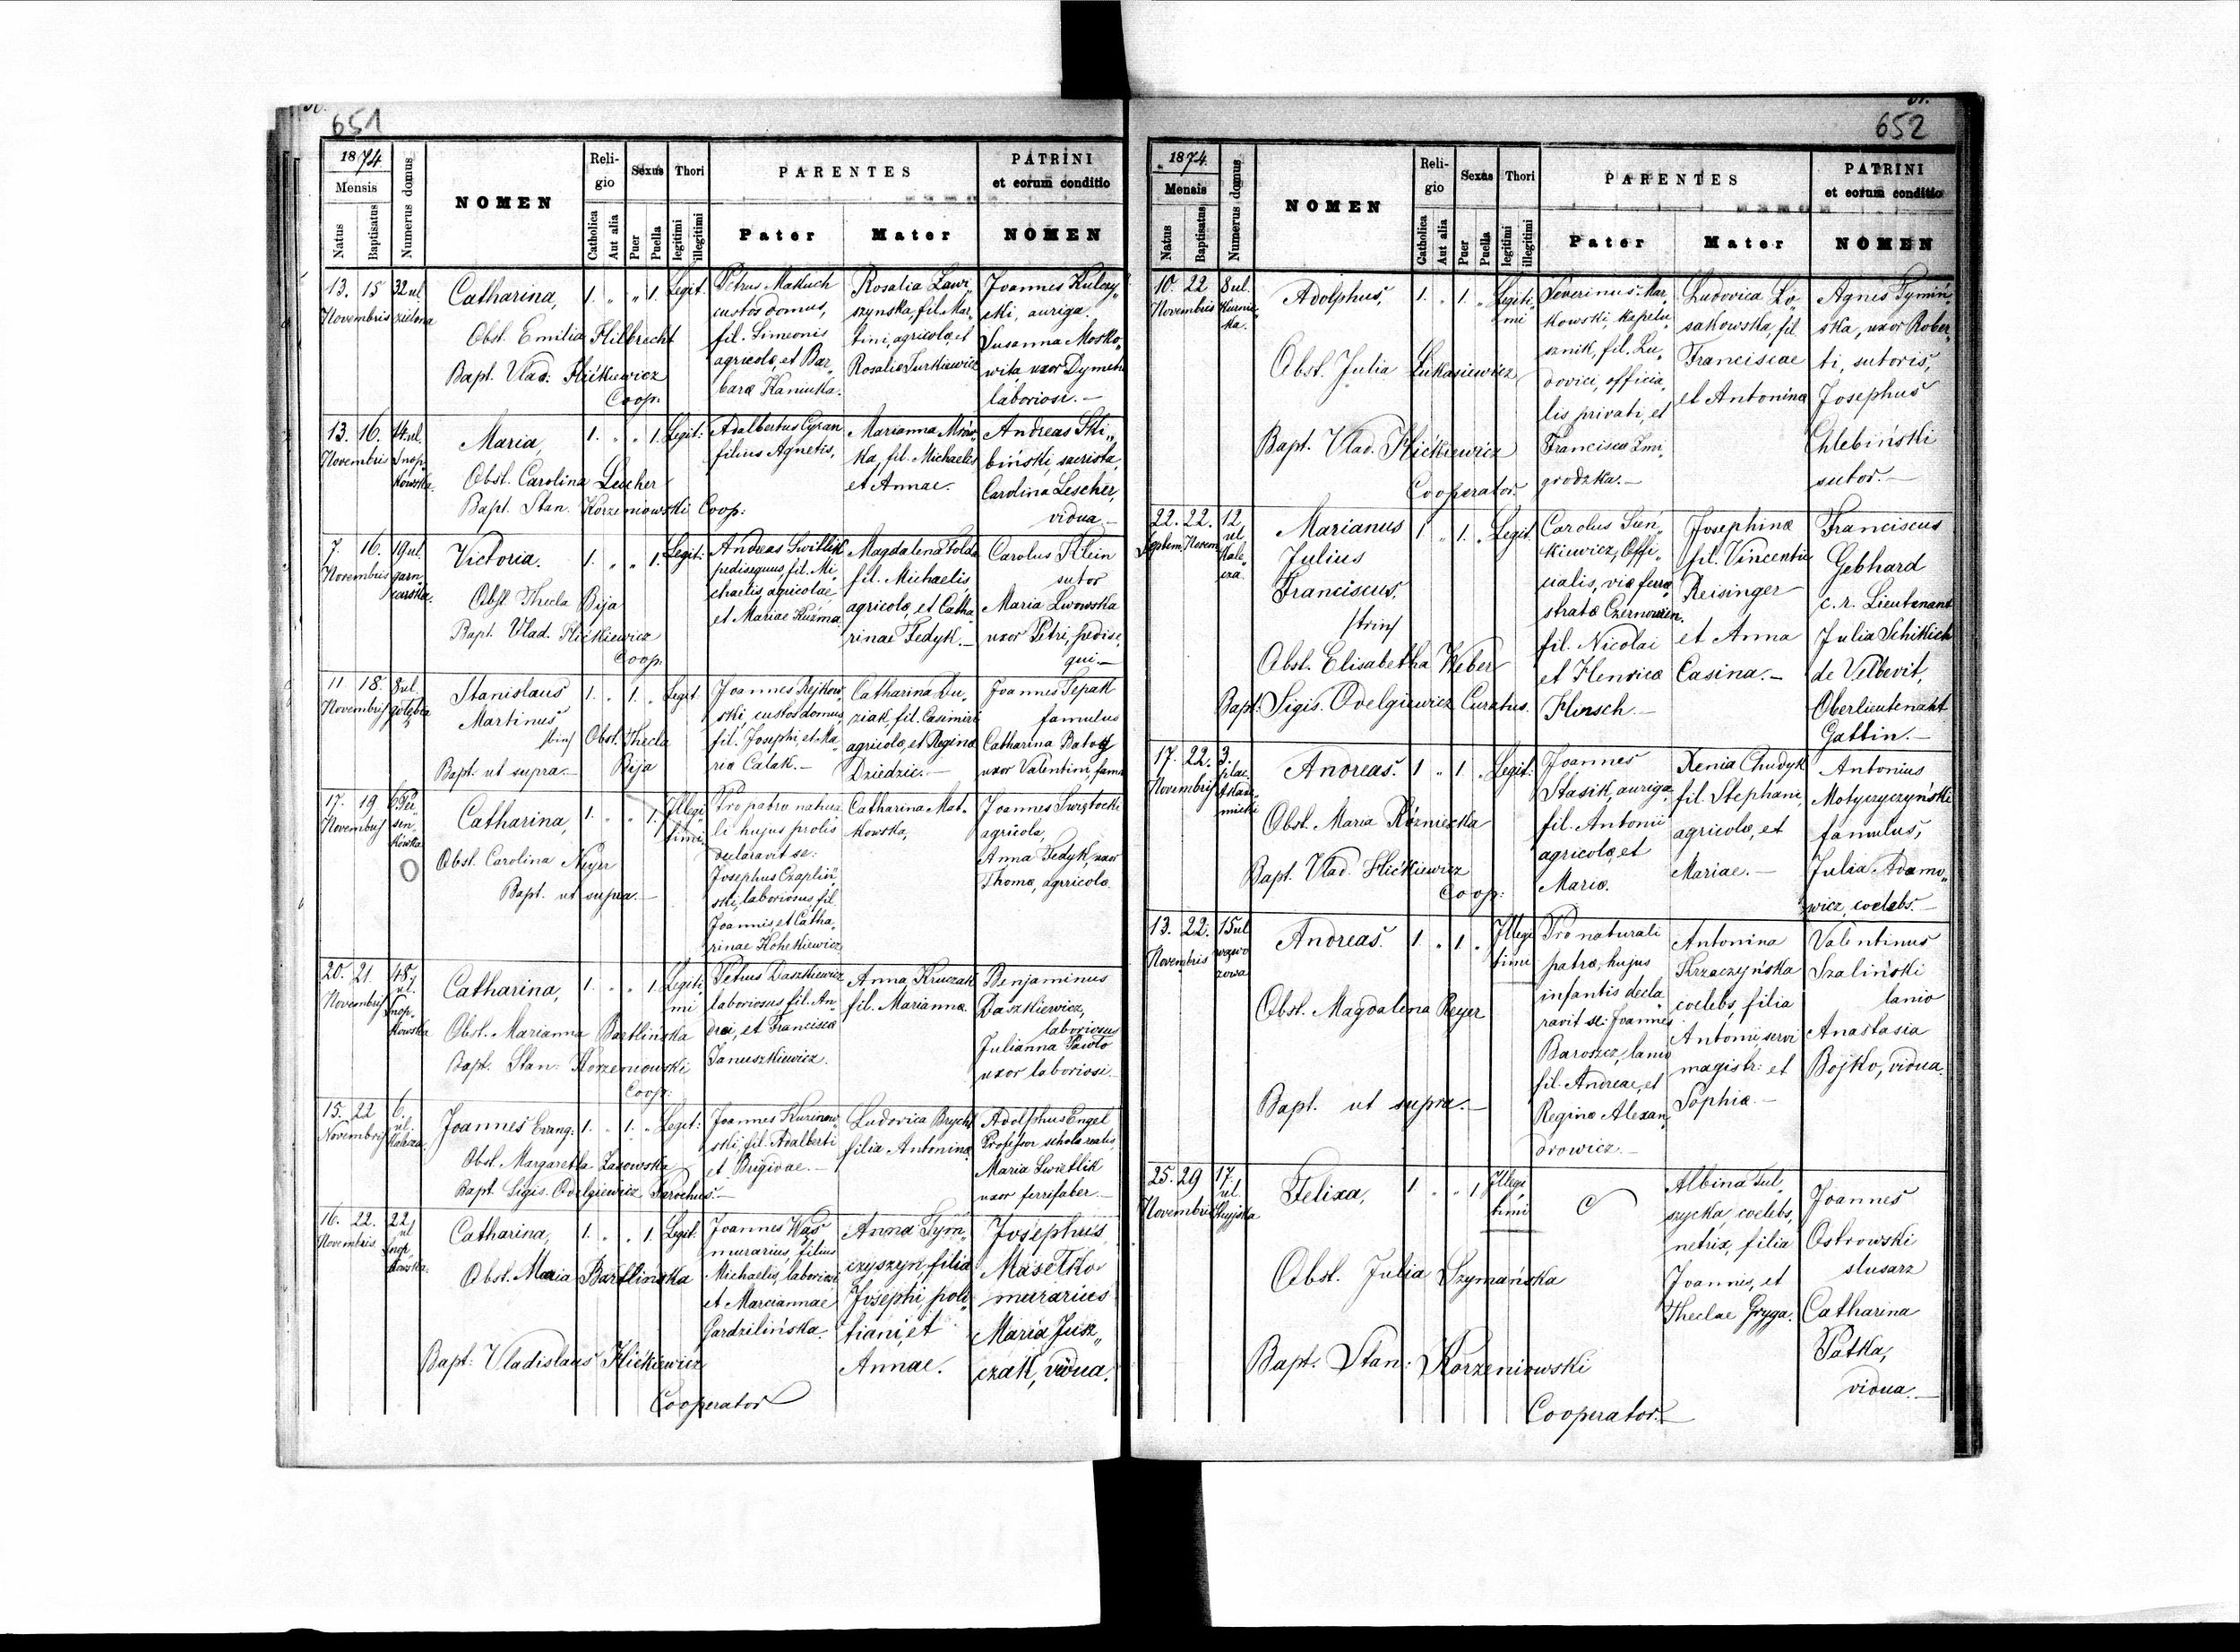 651
1874.
Mensis
Natus
Baptisatus
Numerus domus
NOMEN
Reli-
gio
Catholica
Aut alia
Sexus
Puer
Puella
Thori
legitimi
illegitimi
PARENTES
Pater
Mater
PATRINI
et eorum conditio
NOMEN
13. 15 32 ul
Novembris zielona
Catharina,
1. „ „ 1. Legit.
Obst. Emilia Hilbrecht
Bapt. Vlad. Hićkiewicz
Coop.
Petrus Makuch
custos domus,
fil. Simeonis
agricolæ, et Bar„
baræ Kaniuka.
Rosalia Ławr„
szynska, fil. Mar„
tini, agricolæ, et
Rosaliæ Turkiewicz
Joannes Kulczy„
cki, auriga.
Susanna Mosko„
wita, uxor Dymetri
laboriosi.—
13. 16. 14 ul.
Novembris Snop„
kowska.
Maria,
1. „ „ 1. Legit:
Obst. Carolina Lescher
Bapt. Stan. Korzeniowski Coop:
Adalbertus Cyran
filius Agnetis,
Marianna Mrów„
ka, fil. Michaelis
et Annae.
Andreas Ski„
biński, sacrista,
Carolina Lescher,
vidua.—
7. 16. 19 ul.
Novembris garn„
carska.
Victoria.
1. „ „ 1. Legit:
Obst. Thecla Bija
Bapt. Vlad. Hićkiewicz
Coop.
Andreas Switlik
pedisequus, fil. Mi„
chaelis, agricolae
et Mariae Kuźma.
Magdalena Fołda
fil. Michaelis
agricolæ, et Catha„
rinae Fedyk.—
Carolus Klein
sutor
Maria Lwowska
uxor Petri, pedise„
qui.—
11 18. 8 ul.
Novembris gołębia
Stanislaus
Martinus
/bin/
1. „ 1. „ Legit.
Obst. Thecla
Bija
Bapt. ut supra.—
Joannes Rejkow„
ski, custos domus,
fil. Josephi, et Ma„
riæ Calak.—
Catharina Du„
ziak, fil. Casimiri
agricolæ, et Reginæ
Dziedzic.—
Joannes Sepak
famulus
Catharina Batog
uxor Valentini, fam.
17. 19 6 Pei
Novembris sen„
kówka
Catharina,
1. „ „ 1. Illegi
timi.
Obst. Carolina Neyer
Bapt. ut supra.—
Pro patre natura
li hujus prolis
declaravit se:
Josephus Czapliń„
ski, laboriosus, fil.
Joannis, et Catha„
rinae Kohekiewicz.
Catharina Mat„
kowska,
Joannes Swiętocki
agricola,
Anna Fedyk, uxor
Thomæ, agricolæ.
20. 21. 48.
ul.
Novembris Snop„
kowska
Catharina,
1. „ „ 1. Legiti„
mi
Obst. Marianna Bartlińska
Bapt. Stan: Korzeniowski
Coop:
Petrus Daszkiewicz
laboriosus fil. An„
dreæ, et Franciscæ
Januszkiewicz.
Anna Kruczak
fil. Mariannæ.
Benjaminus
Daszkiewicz,
laboriosus
Julianna Pawło
uxor laboriosi.—
15. 22 6.
ul.
Novembris Kalcza.
Joannes Evang:
1. „ 1. „ Legit:
Obst. Margaretha Zasowska
Bapt. Sigis. Odelgiewicz Parochus.—
Joannes Kurinow„
ski, fil. Adalberti
et Brigidae.—
Ludovica Brycht
filia Antoninæ.
Adolphus Engel
Professor schola realis,
Maria Swietlik
uxor ferrifaber.—
16. 22. 22
ul
Novembris Snop„
kowska.
Catharina,
1. „ „ 1. Legit.
Obst. Maria Bartlińska
Bapt: Vladislaus Hićkiewicz
Cooperator
Joannes Wąs
murarius, filius
Michaelis, laboriosi
et Marciannae
Gardzilińska.
Anna Tym„
czyszyn, filia
Josephi, poli„
tiani, et
Annae.
Josephus
Masełko
murarius
Maria Jusz„
czak, vidua.
652
1874.
Mensis
Natus
Baptisatus
Numerus domus
NOMEN
Reli-
gio
Catholica
Aut alia
Sexus
Puer
Puella
Thori
legitimi
illegitimi
PARENTES
Pater
Mater
PATRINI
et eorum conditio
NOMEN
10. 22 8 ul.
Novembris Kurni„
ka.
Adolphus,
1. „ 1. „ Legiti„
mi
Obst. Julia Łukasiewicz
Bapt. Vlad. Hićkiewicz
Cooperator.
Severinus Mar„
kowski, kapelu„
sznik, fil. Lu„
dovici, officia„
lis privati, et
Franciscæ Zmi„
grodzka.—
Ludovica Zo„
sakowska, fil.
Franciscae
et Antoninæ
Agnes Tymiń„
ska, uxor Rober„
ti, sutoris,
Josephus
Chlebiński
sutor.—
22. 22. 12
ul
Septem. Novem. Kale„
cza
Marianus
Julius
Franciscus,
/trin/
1 „ 1. „ Legit.
Obst. Elisabetha Weber
Bapt: Sigis. Odelgiewicz Curatus.
Carolus Sien„
kiewicz, Offi„
cialis, viæ ferro
stratæ Czernowien.
fil. Nicolai
et Henricæ
Hensch.—
Josephina
fil. Vincentii
Reisinger
et Anna
Casina.—
Franciscus
Gebhard
c. r. Lieutenant
Julia Schikich
de Vellbevit,
Oberlieutenant
Gattin.—
17. 22. 3.
plac
Novembris Akade
micki
Andreas.
1 „ 1 „ Legit:
Obst. Maria Różniecka
Bapt. Vlad. Hićkiewicz
Coop:
Joannes
Stasik, auriga,
fil. Antonii
agricolæ, et
Mariæ.
Xenia Chudyk
fil. Stephani,
agricolæ, et
Mariae.—
Antonius
Motyczyczyński
famulus,
Julia Adamo„
wicz, coelebs.—
13. 22. 15 ul
Novembris wąwo
zowa
Andreas.
1 „ 1 „ Illegi
timi
Obst. Magdalena Reyer
Bapt. ut supra.—
Pro naturali
patre, hujus
infantis decla„
ravit se: Joannes
Baroszcz, lanio
fil. Andreae, et
Reginæ Alexan„
drowicz.—
Antonina
Krzaczyńska
coelebs, filia
Antonii, servi
magistr: et
Sophiæ.—
Valentinus
Szaliński
lanio
Anastasia
Bojko, vidua.
25. 29 17.
ul.
Novembris Stryjska
Felixa,
1 „ „ 1 Illegi„
timi
Obst. Julia Szymańska
Bapt. Stan: Korzeniowski
Cooperator.—
Albina Tul„
szycka, coelebs,
netrix, filia
Joannis, et
Theclae Gryga.
Joannes
Ostrowski
slusarz
Catharina
Patka,
vidua.—